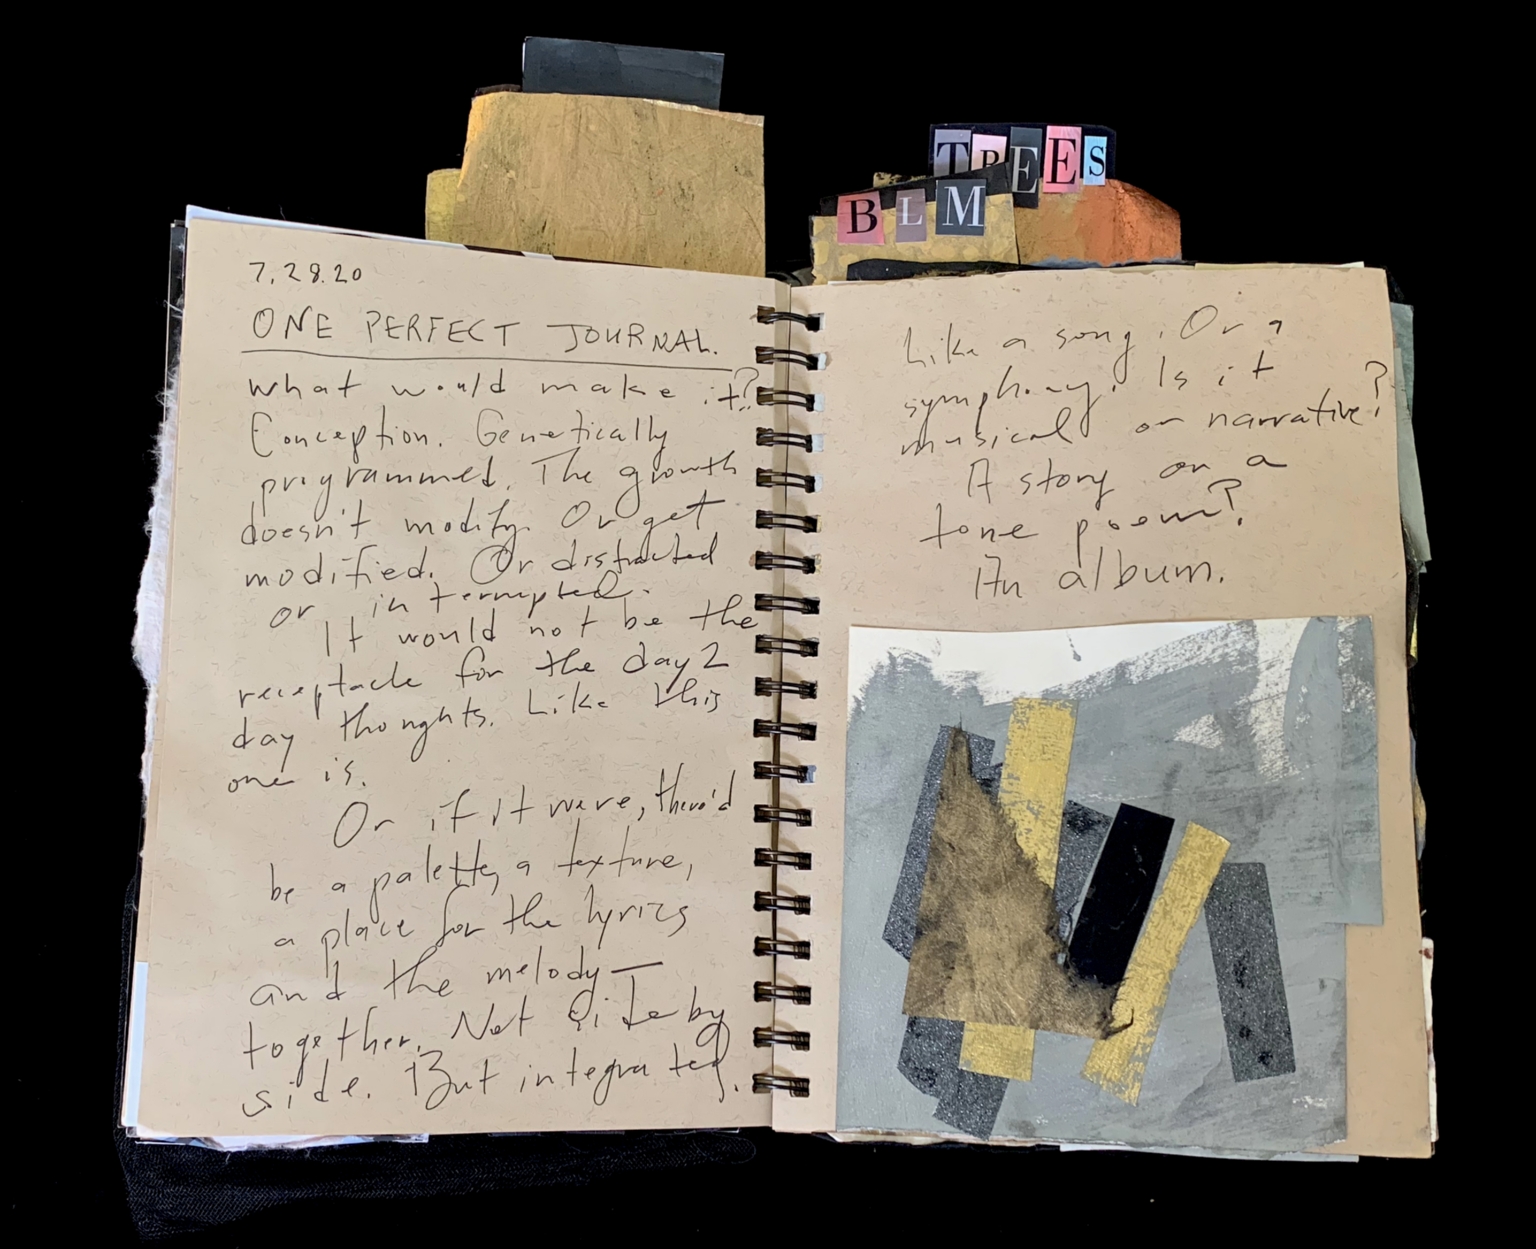 TREES
BLM
7.28.20
ONE PERFECT JOURNAL.
what would make it?
Conception. Genetically
programmed. The growth
doesn't modify. Or get
modified. Or distracted
or interrupted.
It would not be the
receptacle for the day 2
day thoughts. Like this
one is.
Or if it were, there'd
be a palette, a texture,
a place for the lyrics
and the melody—
together. Not side by
side. But integrated.
Like a song. Or a
symphony. Is it
musical or narrative?
A story or a
tone poem?
An album.